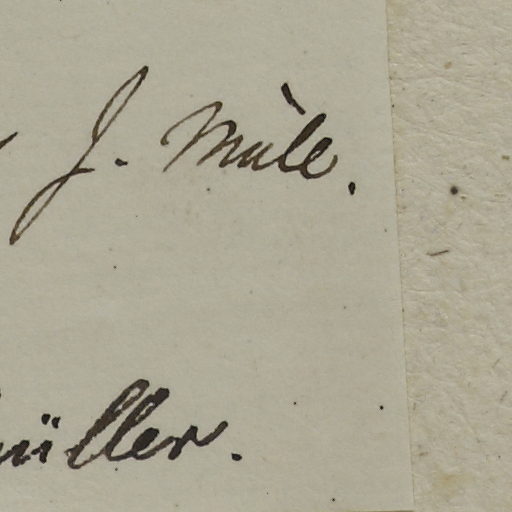 J. Müle.
üller.